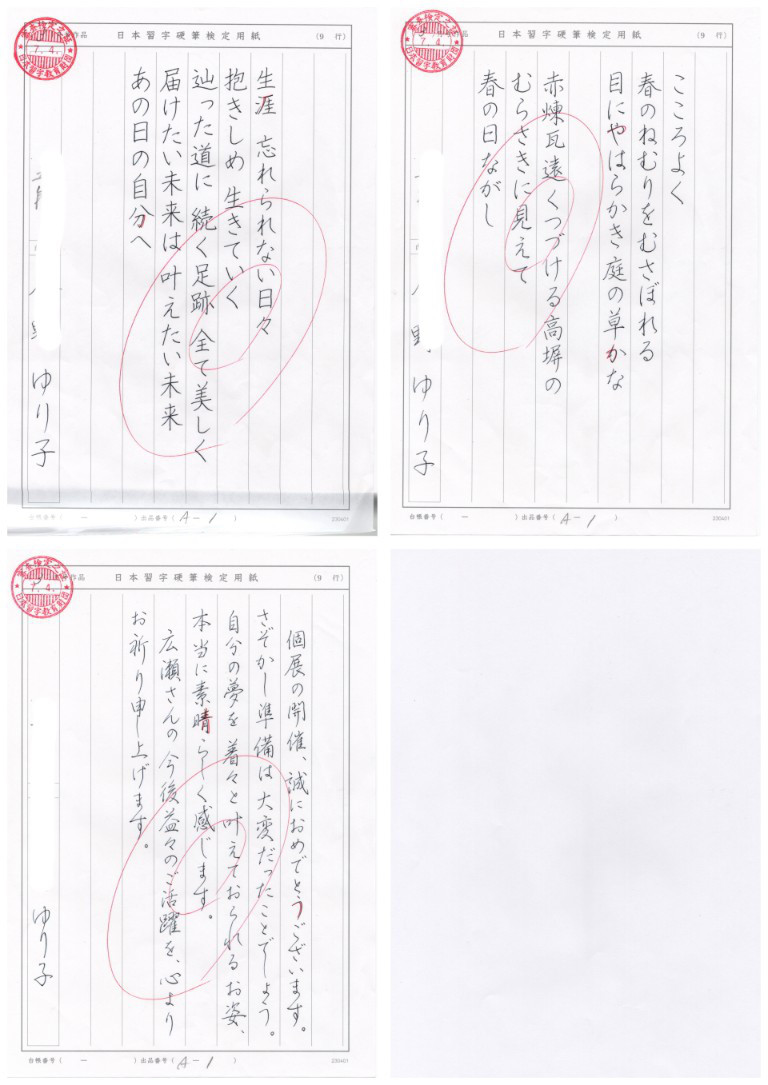 作品 日本習字硬筆検定用紙 (9 行)
7.4.
日本習字教育財団
生涯 忘れられない日々
抱きしめ 生きていく
辿った道に 続く足跡 全て美しく
届けたい未来は 叶えたい未来
あの日の自分へ
ゆり子
台帳番号( ー )出品番号( A-1 )
230401
作品 日本習字硬筆検定用紙 (9 行)
7.4.
日本習字教育財団
こころよく
春のねむりをむさぼれる
目にやはらかき庭の草かな
赤煉瓦遠くつづける高塀の
むらさきに見えて
春の日ながし
ゆり子
台帳番号( ー )出品番号( A-1 )
230401
作品 日本習字硬筆検定用紙 (9 行)
7.4.
日本習字教育財団
個展の開催、誠におめでとうございます。
さぞかし準備は大変だったことでしょう。
自分の夢を着々と叶えておられるお姿、
本当に素晴らしく感じます。
広瀬さんの今後益々のご活躍を、心より
お祈り申し上げます。
ゆり子
台帳番号( ー )出品番号( A-1 )
230401